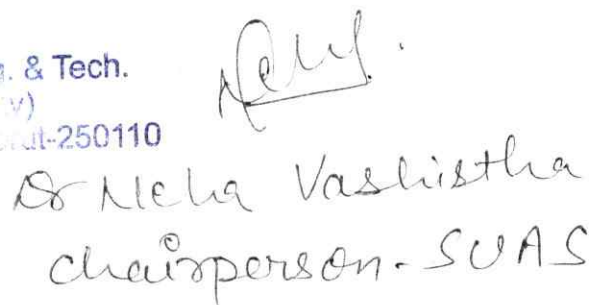 & Tech.
-250110
Dr Neha Vashistha
Chairperson - SUAS